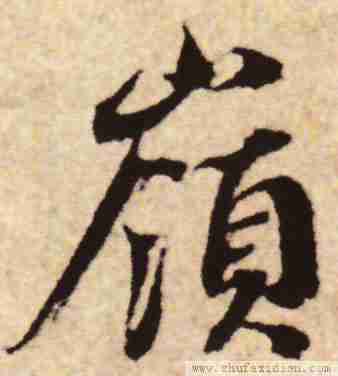 嶺
www.shufazidian.com